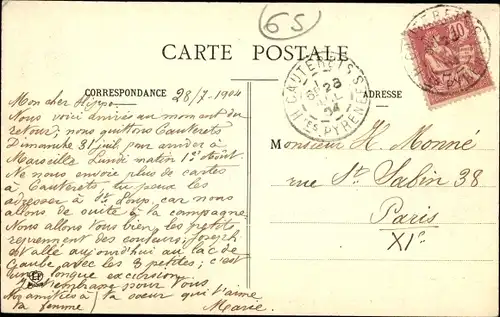 65
CARTE POSTALE
CORRESPONDANCE
28/7-1904
ADRESSE
CAUTERETS
28
04
Htes PYRÉNÉES
10
Mon cher Hippo.
Nous voici arrivés au moment du
retour, nous quittons Cauterets
Dimanche 31 juil. pour arriver à
Marseille Lundi matin 1er Août.
Ne nous envoie plus de cartes
à Cauterets tu peux les
adresser à St Loup, car nous
allons de suite à la campagne.
Nous allons tous bien, les petits
reprennent des couleurs, Joseph
est allé aujourd'hui au lac de
Gaube avec les 3 petites; c'est
une longue excursion.
embrasse pour vous
amitiés à ta soeur qui t'aime
ta femme
Marie.
Monsieur H. Monné
rue St Sabin 38
Paris
XIe